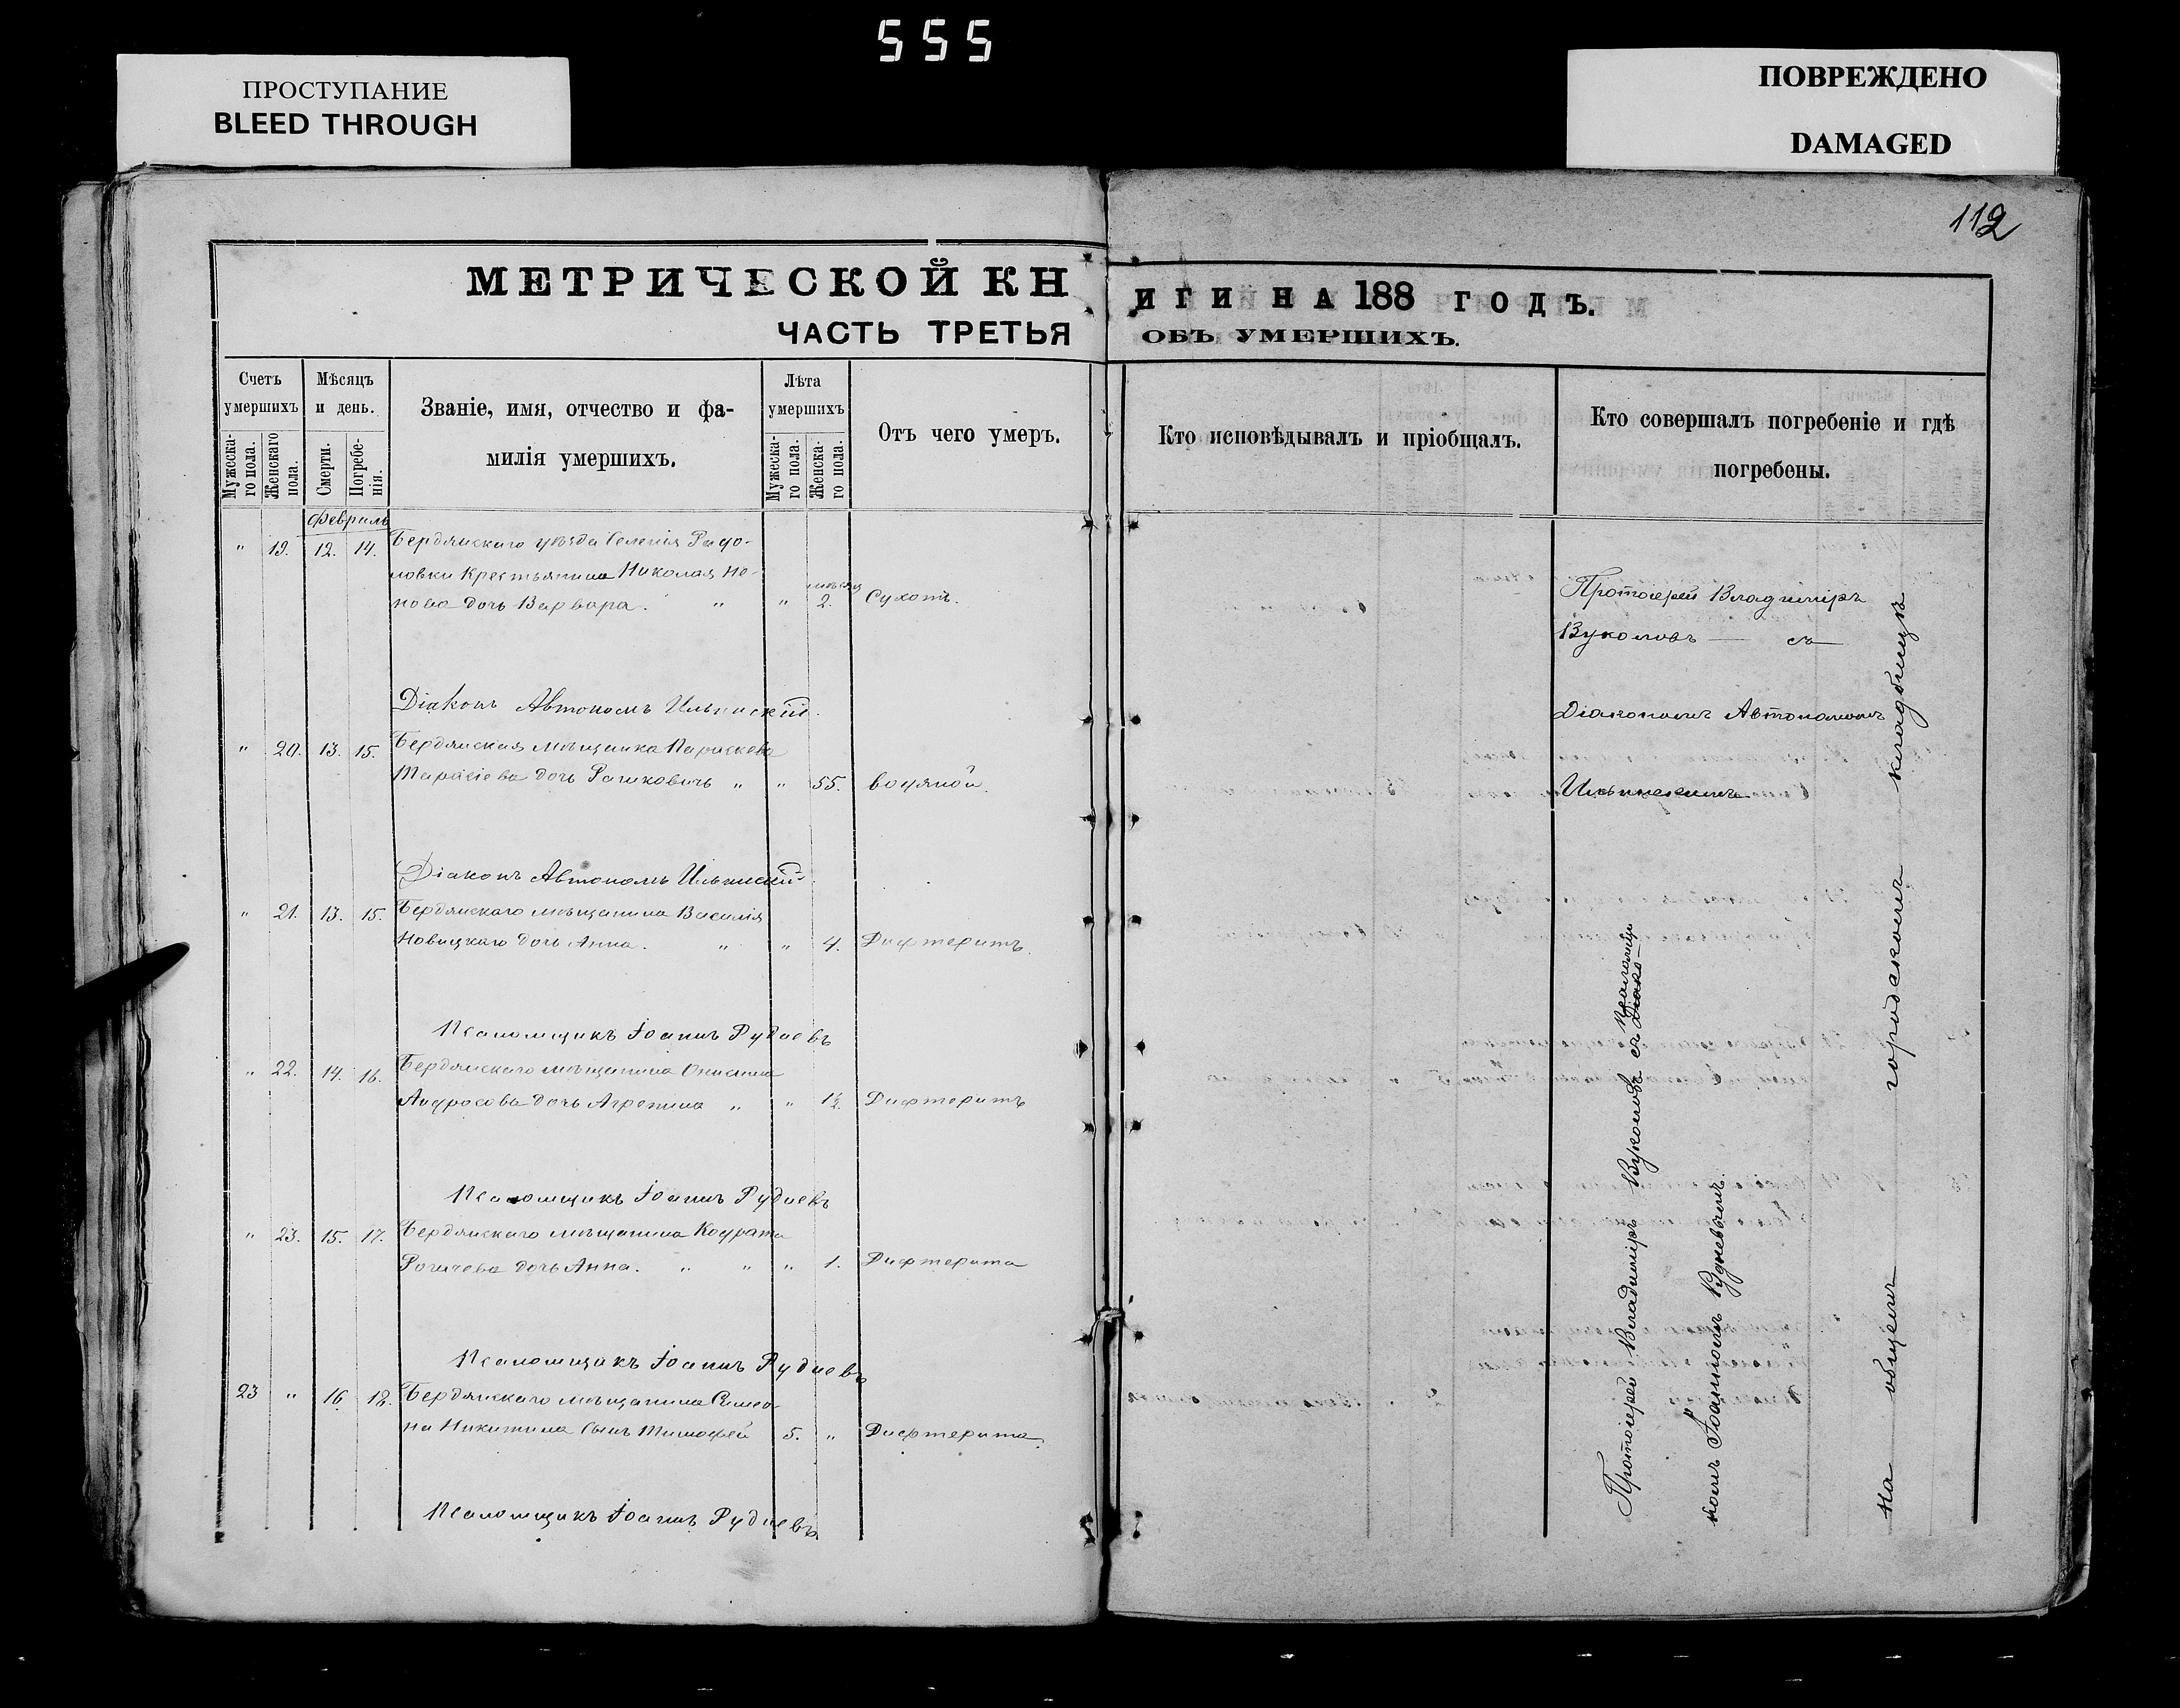 555
ПРОСТУПАНИЕ
BLEED THROUGH
ПОВРЕЖДЕНО
DAMAGED
112
МЕТРИЧЕСКОЙ КН
ИГИ НА 188 ГОДЪ.
ЧАСТЬ ТРЕТЬЯ
ОБЪ УМЕРШИХЪ.
Счетъ умершихъ
Мужеска-
го пола.
Женскаго
пола.
Мѣсяцъ и день.
Смерти.
Погребе-
нія.
Званіе, имя, отчество и фа-
милія умершихъ.
Лѣта умершихъ
Мужеска-
го пола.
Женска-
го пола.
Отъ чего умеръ.
Кто исповѣдывалъ и пріобщалъ.
Кто совершалъ погребеніе и гдѣ
погребены.
Февраль
" 19. 12. 14. Бердянскаго уѣзда Селенія
Крестьянина Николая
дочь Варвара. " " 2. Сухоты.
Діаконъ Автономъ Ильинскій.
" 20. 13. 15. Бердянская мѣщанка Параскева
дочь " " 55. водяной.
Діаконъ Автономъ Ильинскій
" 21. 13. 15. Бердянскаго мѣщанина Василія
Новицкаго дочь Анна. " " 4. Дифтеритъ.
Псаломщикъ Іоаннъ Рудневъ
" 22. 14. 16. Бердянскаго мѣщанина
дочь Агрепина " " 1½ Дифтеритъ
Псаломщикъ Іоаннъ Рудневъ
" 23. 15. 17. Бердянскаго мѣщанина Кодрата
дочь Анна. " " " 1. Дифтерита
Псаломщикъ Іоаннъ Рудневъ
23 " 16 18. Бердянскаго мѣщанина Симео-
на Никитина сынъ Тимофей 5. " Дифтерита.
Псаломщикъ Іоаннъ Рудневъ
Протоіерей Владиміръ
Вуколовъ — съ
Діакономъ Автономомъ
Ильинскимъ
Протоіерей Владиміръ Вуколовъ съ
Іоанномъ Рудневымъ.
на общемъ городскомъ кладбищѣ